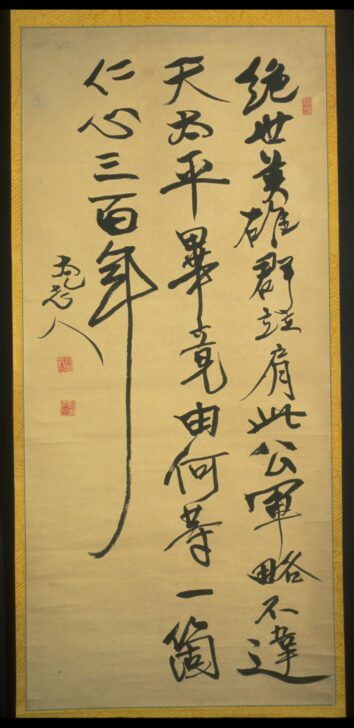 絶世英雄群並肩此公軍略不違
天太平畢竟由何一箇
仁心三百年
人